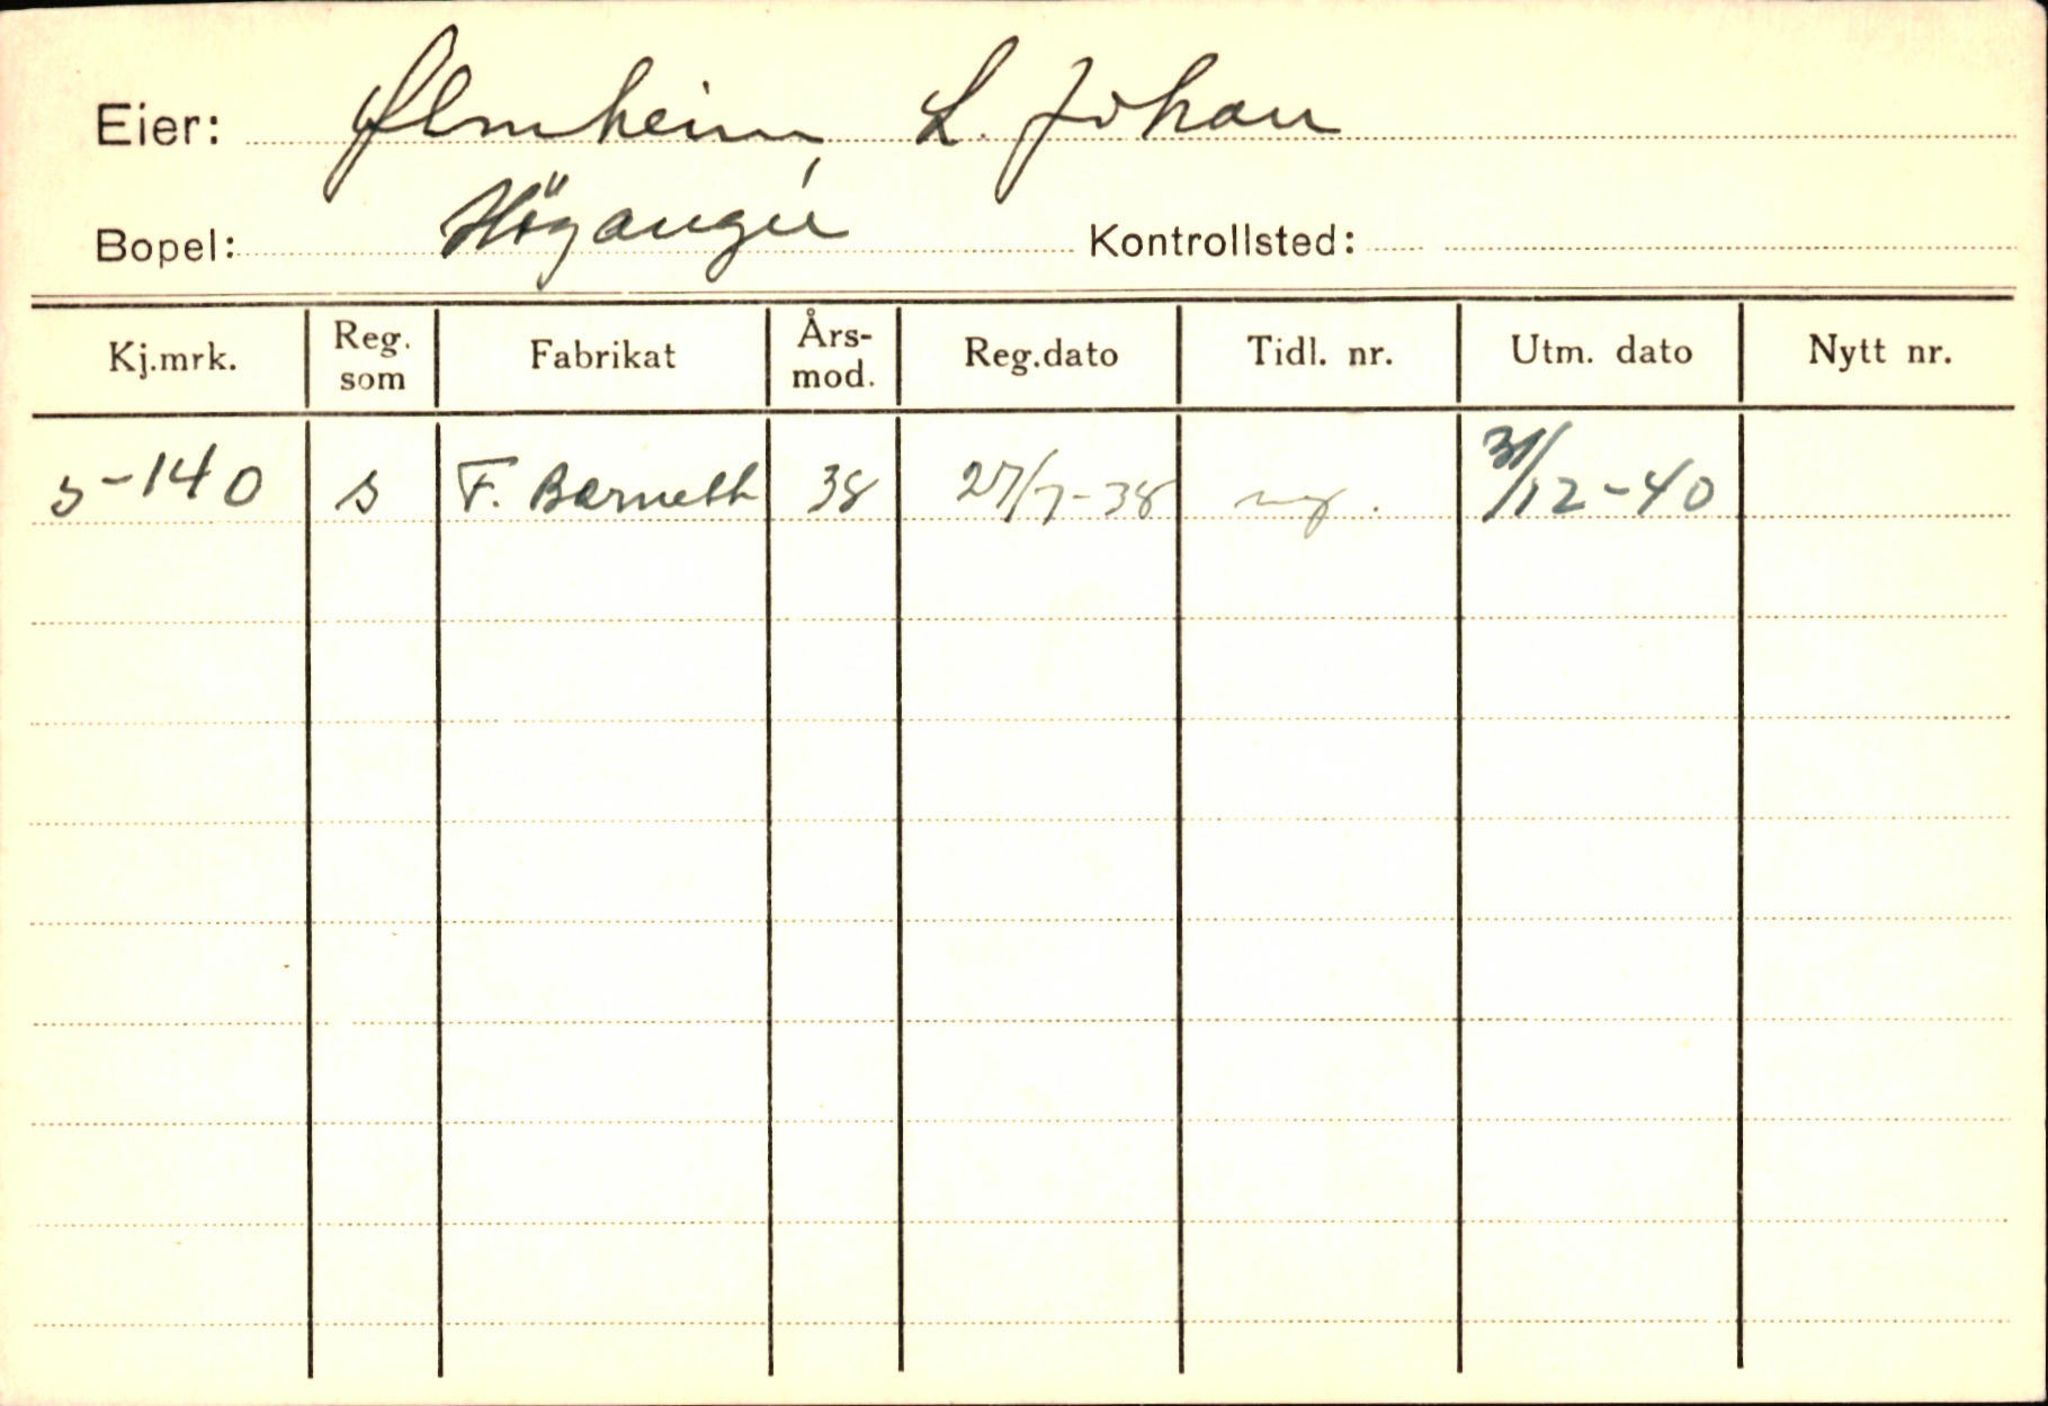 Eier: Ølmheim, L. Johan
Bopel: Höyanger Kontrollsted:
Kj.mrk. Reg. som Fabrikat Års- mod. Reg.dato Tidl. nr. Utm. dato Nytt nr.
S-140 S F. Barnett 38 27/7-38 ny. 31/12-40